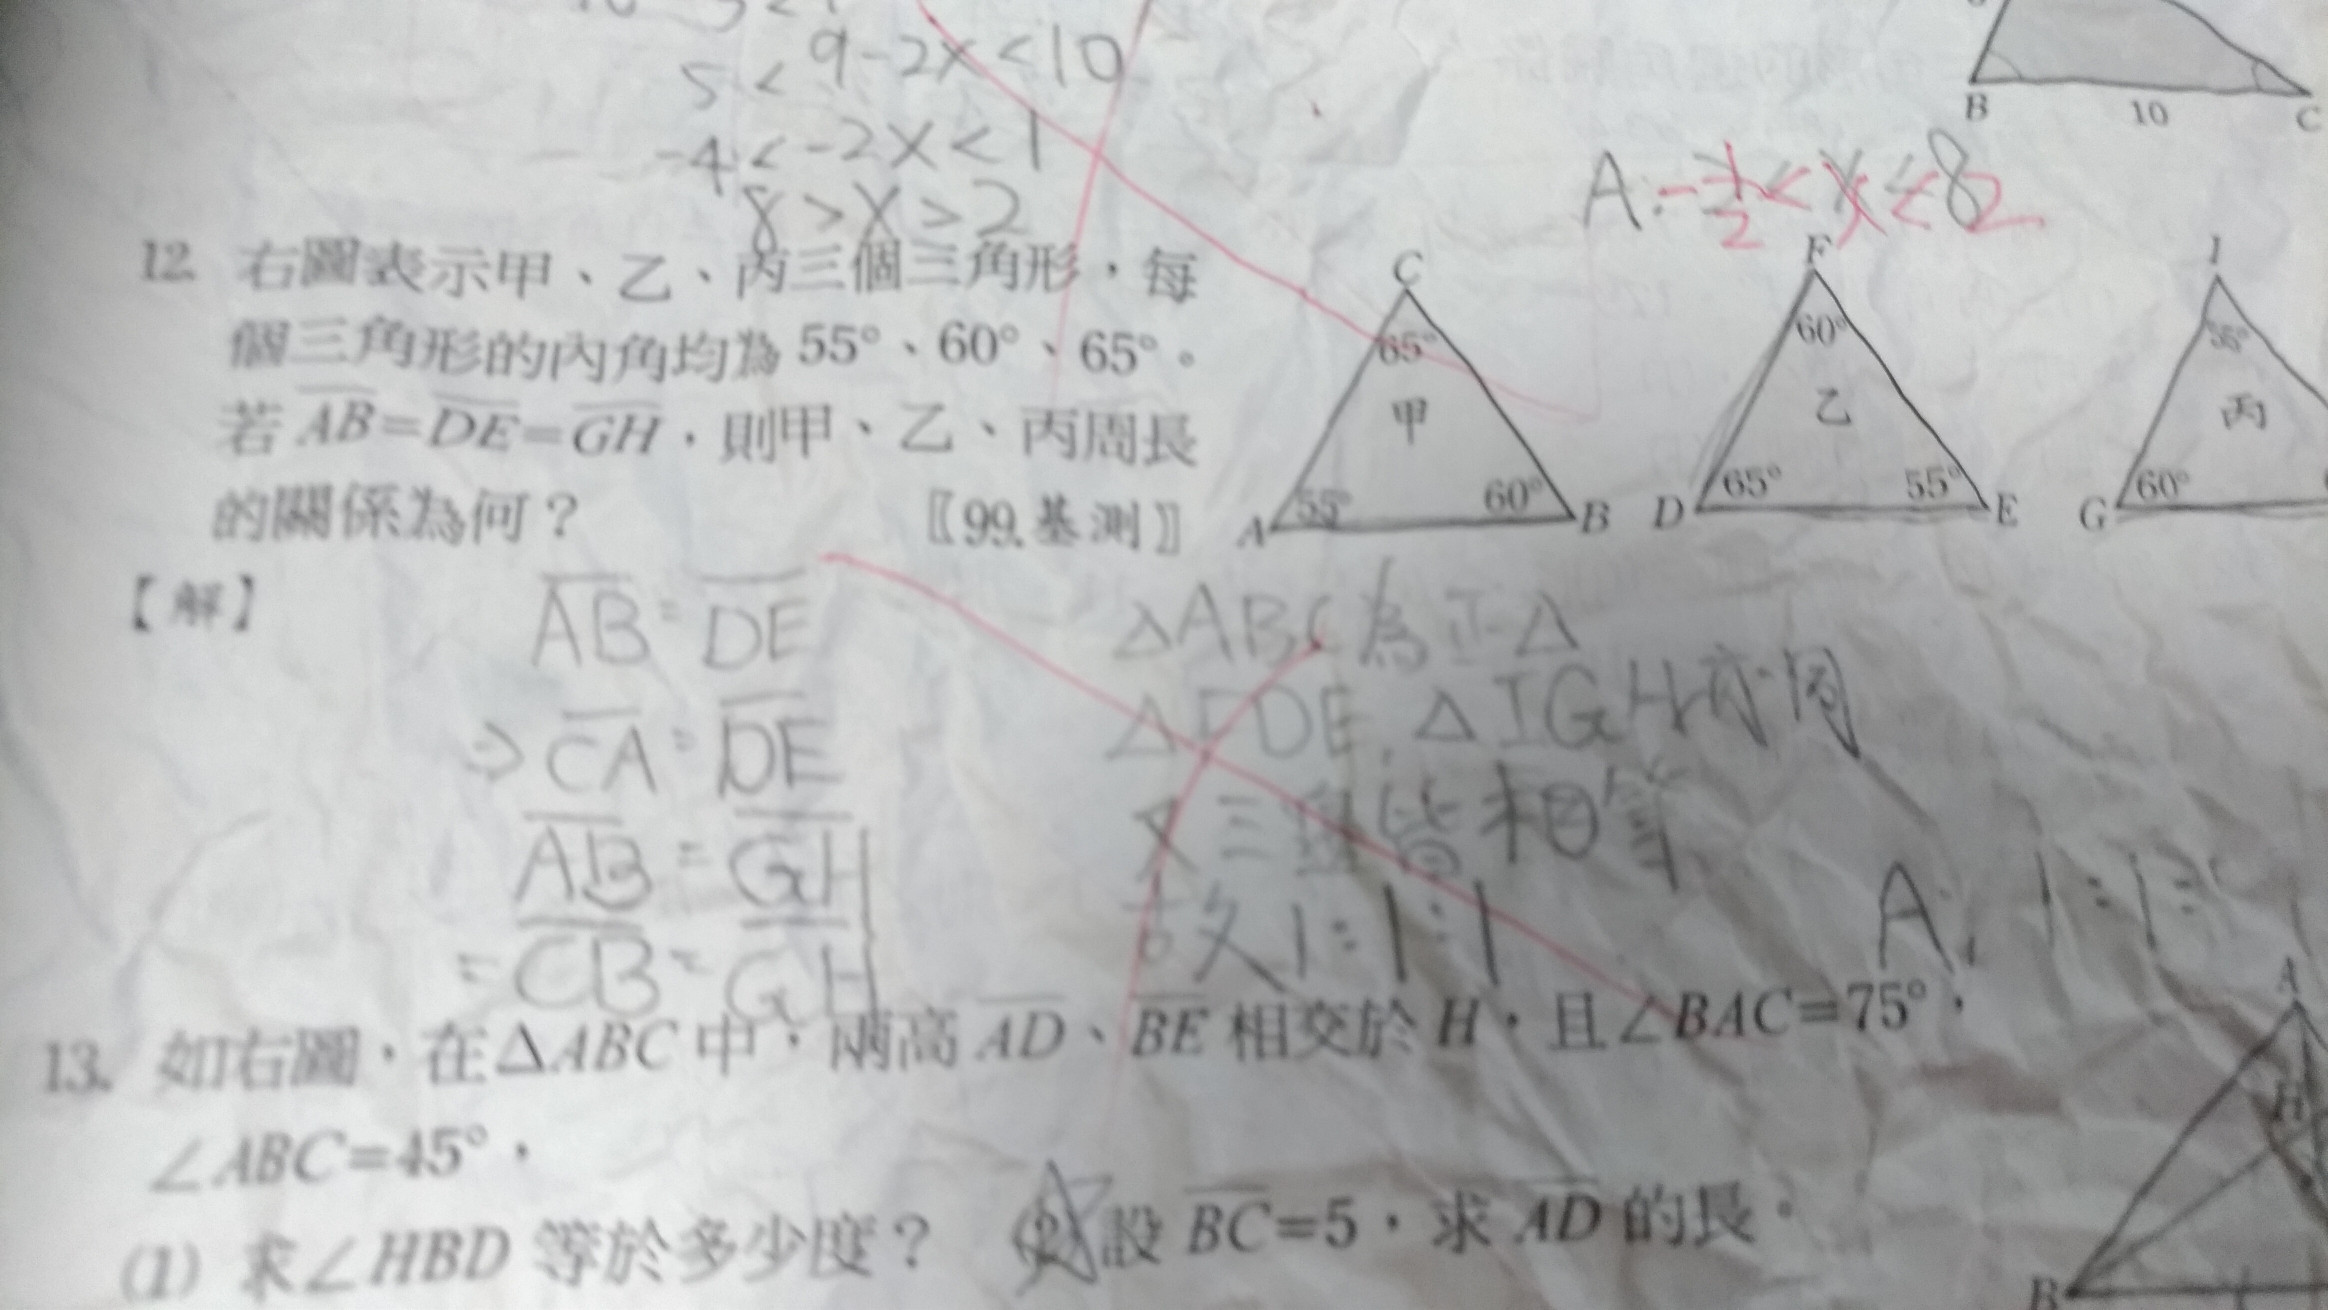 5 < 9-2x < 10
B 10 C
-4 < -2x < 1
8 > x > 2
12. 右圖表示甲、乙、丙三個三角形，每
個三角形的內角均為 55°、60°、65°。
若 AB=DE=GH，則甲、乙、丙周長
的關係為何？ 〖99.基測〗
C
65°
甲
55° 60°
A B
F
60°
乙
65° 55°
D E
I
55°
丙
60°
G
【解】
AB = DE
⇒ CA = DE
AB = GH
= CB = GH
△ABC為正△
△FDE, △IGH亦同
又三邊皆相等
故 1:1:1
13. 如右圖，在△ABC 中，兩高 AD、BE 相交於 H，且∠BAC=75°，
∠ABC=45°，
(1) 求∠HBD 等於多少度？ (2) 設 BC=5，求 AD 的長。
A
H
B